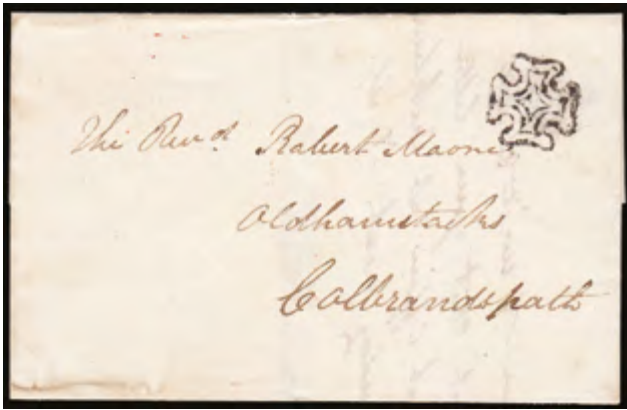 The Revd. Robert Moone
Oldhamstocks
Colbrandspath